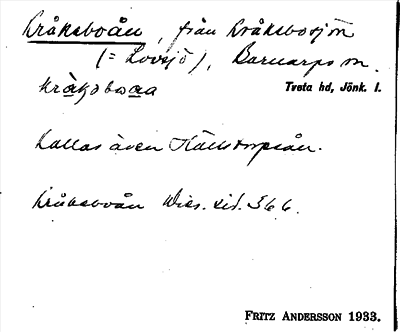 Kråksboån, från Kråksbosjön
(= Lovsjö), Barnarps sn.
Tveta hd, Jönk. l.
kallas även Källstorpsån.
Kråksboån Wies. sid. 366.
FRITZ ANDERSSON 1933.